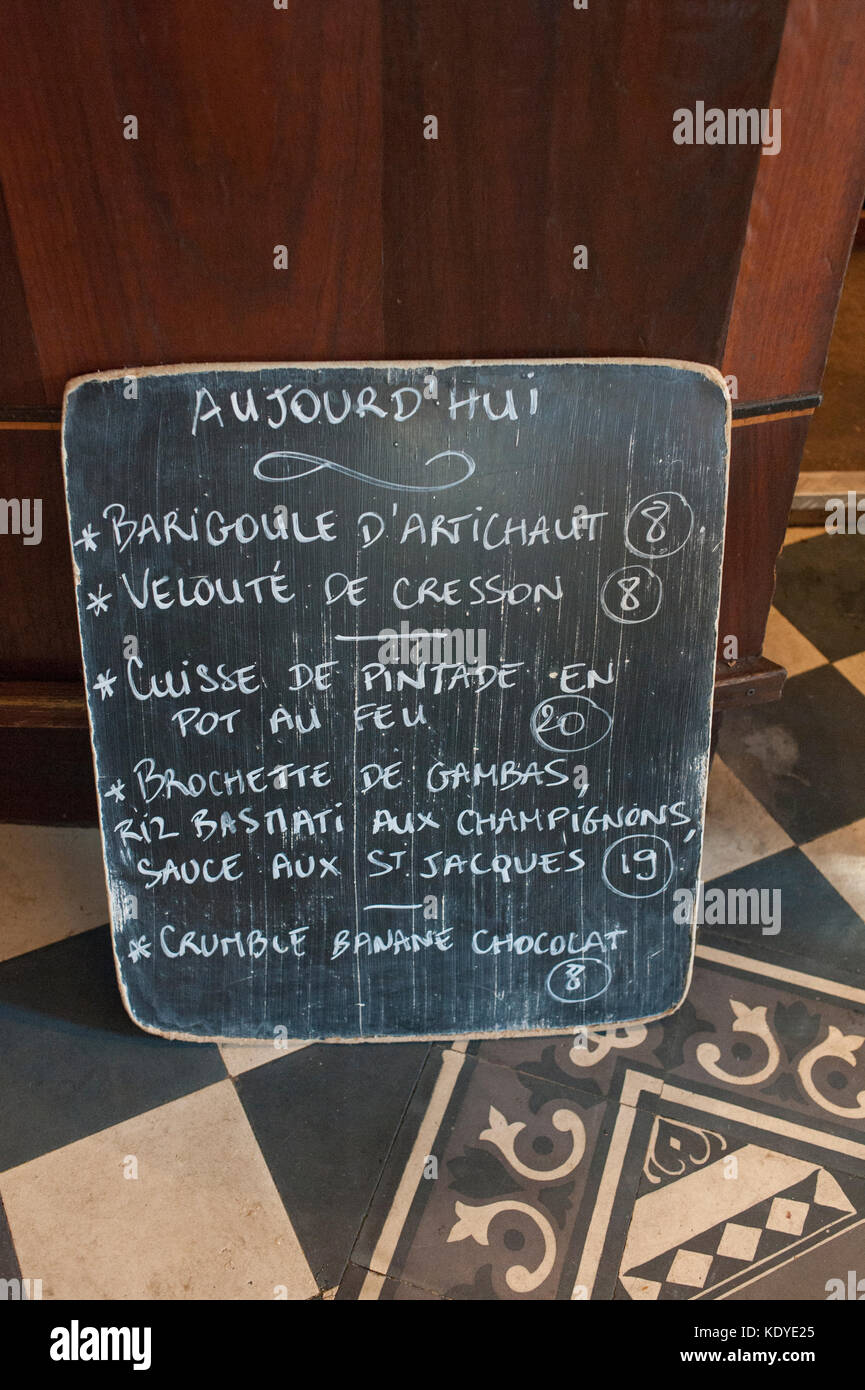 AUJOURD'HUI
* BARIGOULE D'ARTICHAUT 8
* VELOUTÉ DE CRESSON 8
* CUISSE DE PINTADE EN
POT AU FEU 20
* BROCHETTE DE GAMBAS,
RIZ BASMATI AUX CHAMPIGNONS,
SAUCE AUX ST. JACQUES 19
* CRUMBLE BANANE CHOCOLAT
8
alamy
Image ID: KDYE25
www.alamy.com